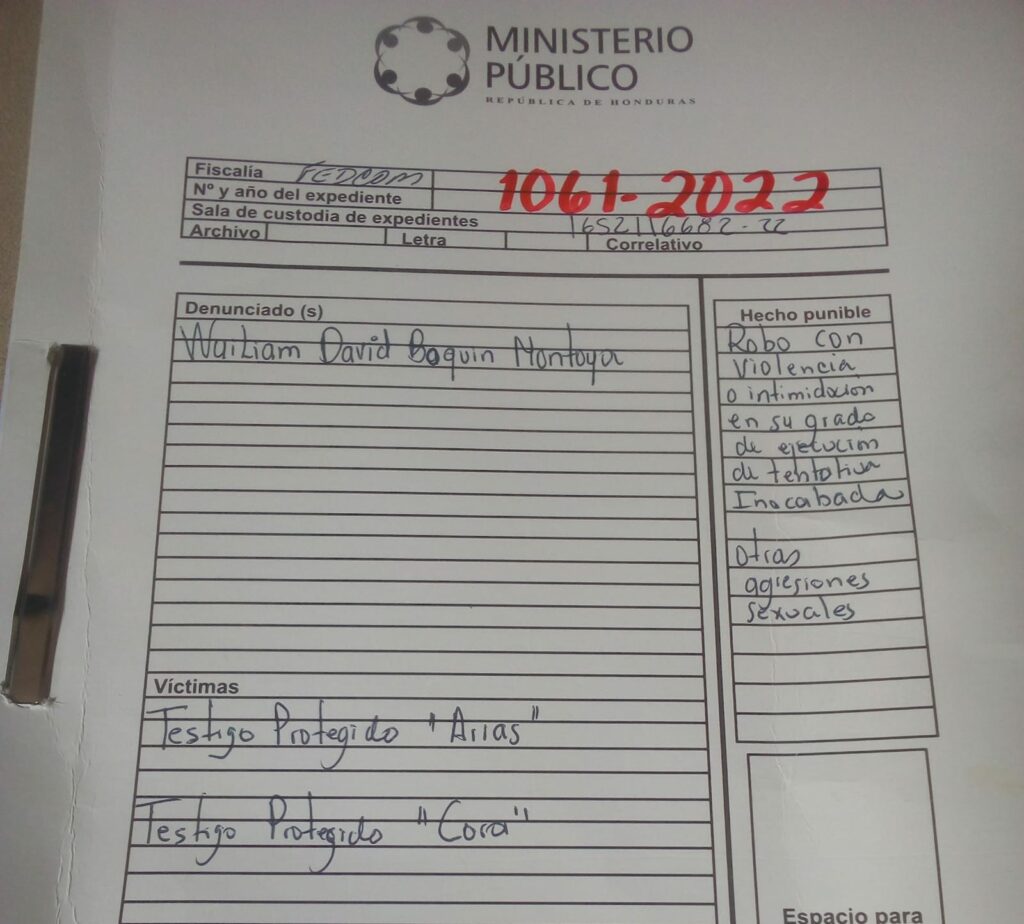 MINISTERIO
PÚBLICO
REPÚBLICA DE HONDURAS
Fiscalía FEDCOM
Nº y año del expediente 1061-2022
Sala de custodia de expedientes 1652116682-22
Archivo Letra Correlativo
Denunciado (s)
Wailiam David Boquin Montoya
Hecho punible
Robo con
violencia
o intimidación
en su grado
de ejecución
de tentativa
Inacabada
otras
agresiones
sexuales
Víctimas
Testigo Protegido "Arias"
Testigo Protegido "Cora"
Espacio para